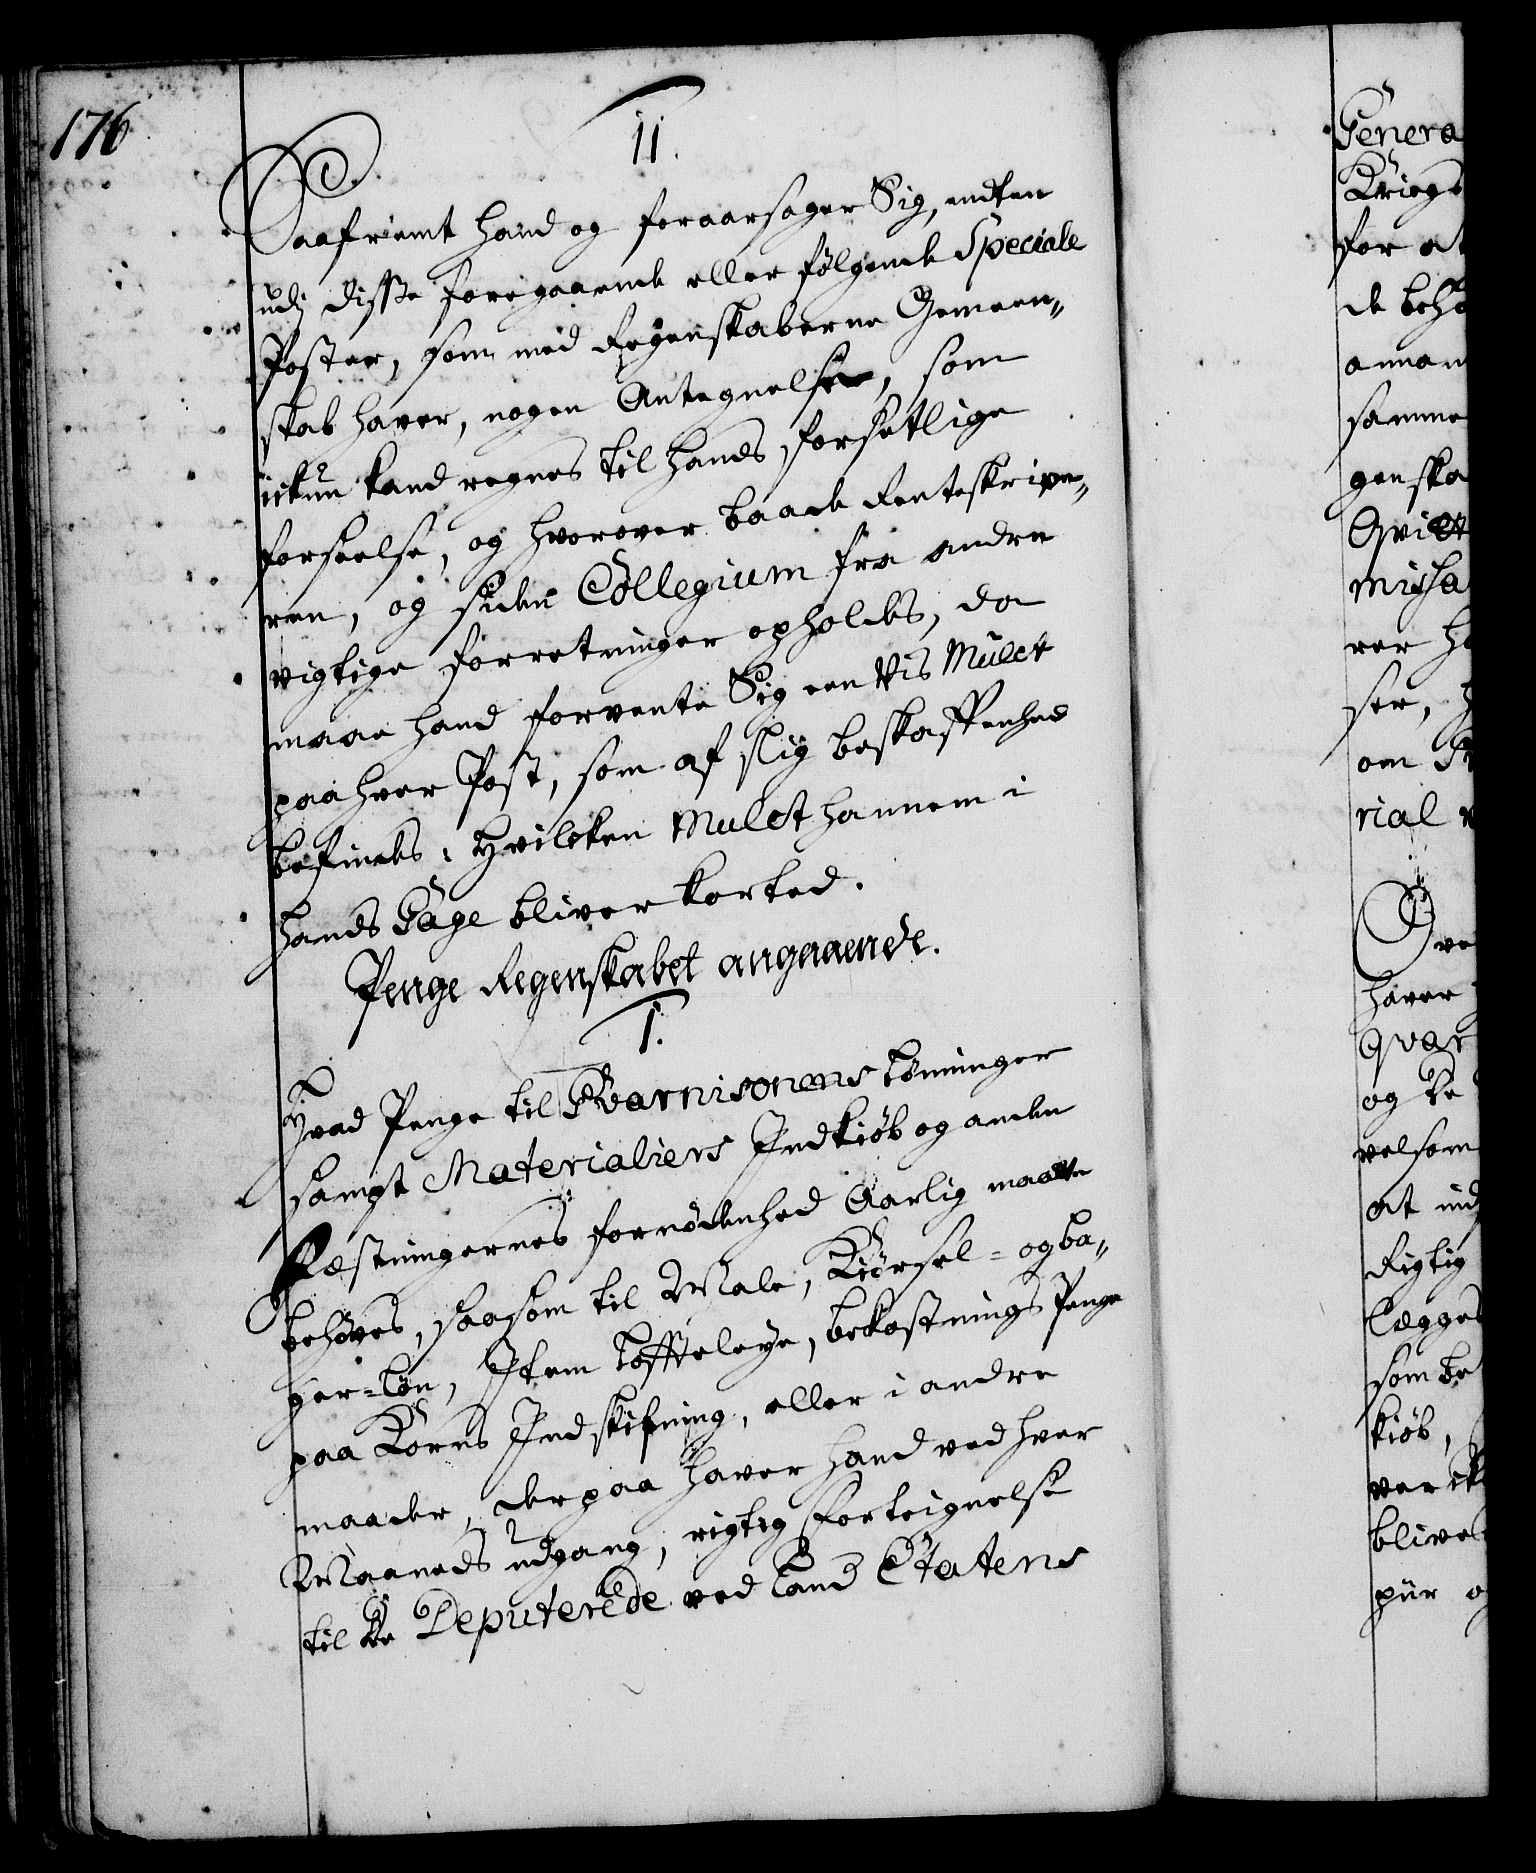 176
11.
Saafremt hand og foraarsager Sig, endten
udj disse foregaaende eller følgende Speciale
Poster, som med Regenskaberne Gemeen„
skab haver, nogen Antegnelse, som
ickun kand regnes til hands forsetlige
forseelse, og hvorover baade Renteskrive„
ren, og siden Collegium fra andre
vigtige forretninger opholdes, da
maae hand forvente Sig een Vis Mulct
paa hver Post, som af slig beskaffenhed
befindes; Hvilcken Mulct hannem i
hands Gage bliver korted.
Penge Regenskabet angaaende.
1.
Hvad Penge til Guarnisonens Lønninger
sampt Materialiers Indkiøb og anden
Fæstningernes fornødenhed Aarlig maatte
behøves, saasom til Male, Kiørsel- og ba„
ger-Løn, Item Loffteleye, bekostnings Penge
paa Korns Indskifning, eller i andre
maader, derpaa haver hand ved hver
Maaneds udgang, rigtig forteignelse
til de Deputerede ved Land Etatens
Genera
Kriegs
for at
de behø
annam
samme
genska
Qvitt
missa
rer ha
ser, h
om
rial
Ove
haver
qvar
og de
velsom
at ind
Rigtig
Legges
som be
kiøb,
ver
blive
pür og